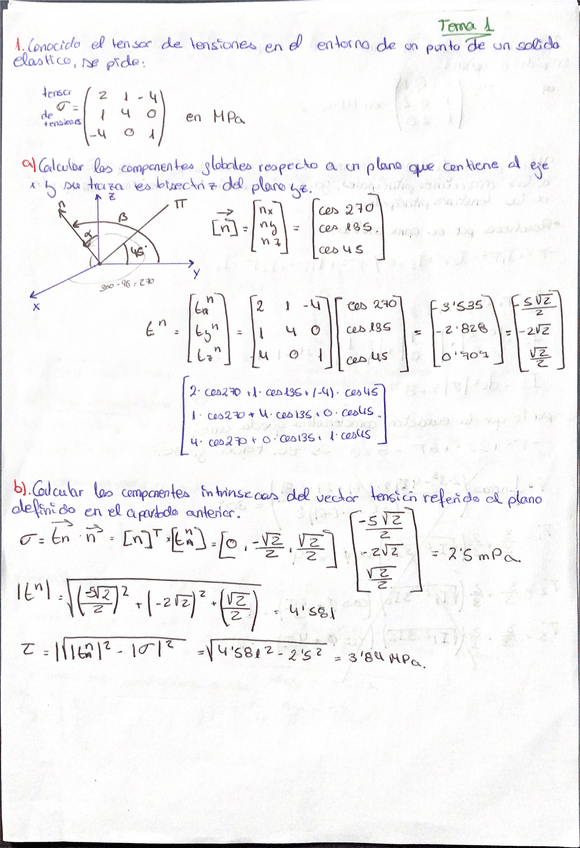 Tema 1
1. Conocido el tensor de tensiones en el entorno de un punto de un solido
elastico, se pide:
tensor de tensiones σ = ( 2 1 -4 ; 1 4 0 ; -4 0 1 ) en MPa
a) Calcular las componentes globales respecto a un plano que contiene al eje
x y su traza es bisectriz del plano yz.
z n β π α 45° y x
360 - 95 = 270
[n] = [nx ; ny ; nz] = [cos 270 ; cos 135 ; cos 45]
t^n = [tx^n ; ty^n ; tz^n] = [2 1 -4 ; 1 4 0 ; -4 0 1] [cos 270 ; cos 135 ; cos 45] = [-3'535 ; -2.828 ; 0'707] = [-5√2/2 ; -2√2 ; √2/2]
[2·cos270 + 1·cos135 + (-4)·cos45
1·cos270 + 4·cos135 + 0·cos45
4·cos270 + 0·cos135 + 1·cos45]
b). Calcular las componentes intrinsecas del vector tensión referido al plano
definido en el apartado anterior.
σ = tn · n = [n]^T · [t^n] = [0, -√2/2, √2/2] [-5√2/2 ; -2√2 ; √2/2] = 2'5 mPa.
|t^n| = √((-5√2/2)² + (-2√2)² + (√2/2)²) = 4'581
τ = |√|t^n|² - |σ|² = √4'581² - 2'5² = 3'84 MPa.